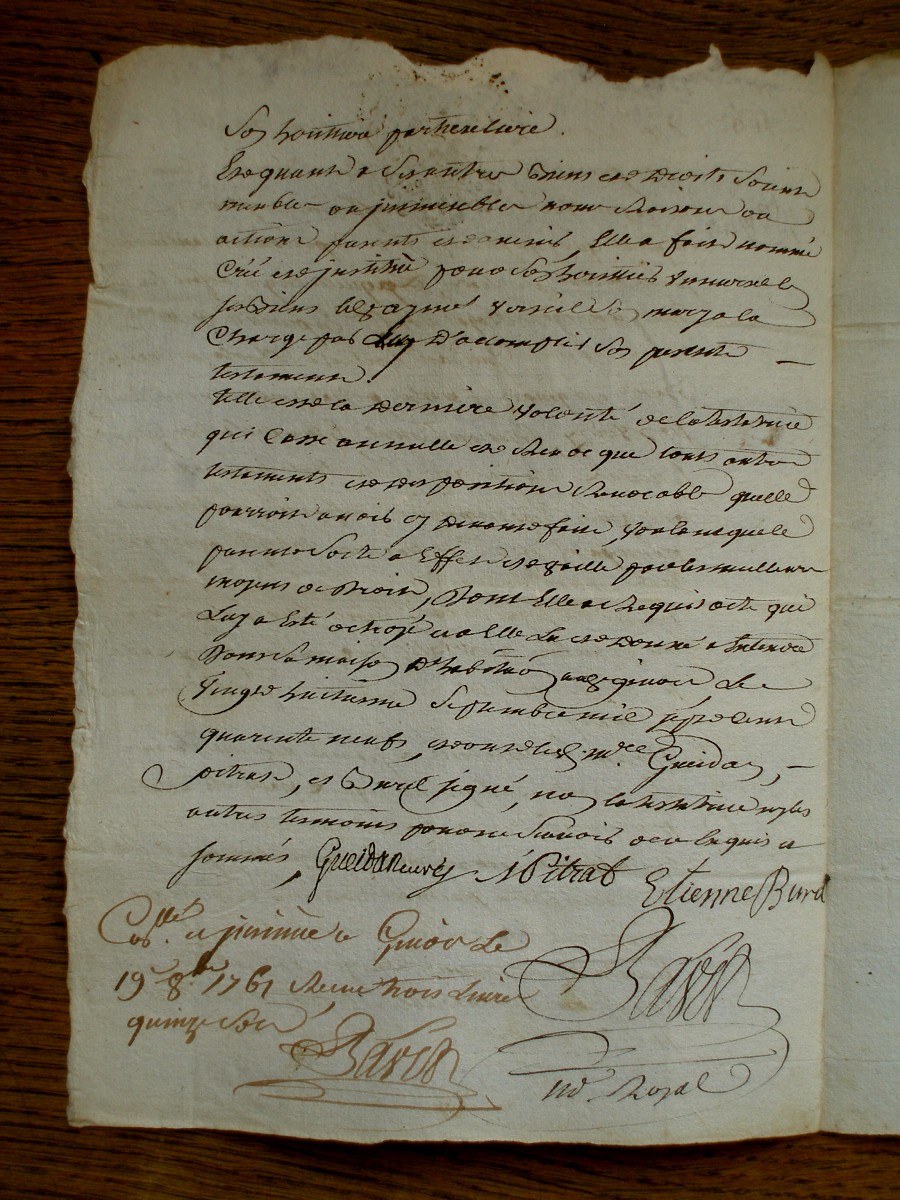 Son heritiere particuliere.
Et quant a ses autres biens et droits soient
meubles ou immeubles noms Raisons ou
actions presents et avenir, Elle a fait nommé
Crée et institué pour son heritier universel
Verset son mary a la
Charge par luy D'acomplir son present
testament.
telle est la derniere volonté de la testatrice
qui Casse annulle et Revoque tous autres
testaments et dispositions Revocable quelle
pourroit avoir cy devant faits, voulant que le
present sorte a Effet et vaille par les meilleurs
moyens de Droit, Dont Elle a Requis acte qui
Luy a Esté octroyé a Elle Lu et Donné a Entendre
Dans la maison D'habitation Le
Vingt huitieme Septembre mil sept cent
quarente neuf, et ont led. mre Gueidan,
pitrat, et Burel signé, non la testatrice ny les
autres temoins pour ne scavoir de ce Enquis et
sommés, Gueidan curé Pitrat Etienne Burel
Collé. et insinué a Le
19e 8bre 1761 Receu trois Livres
quinze Sols
nre. Royal